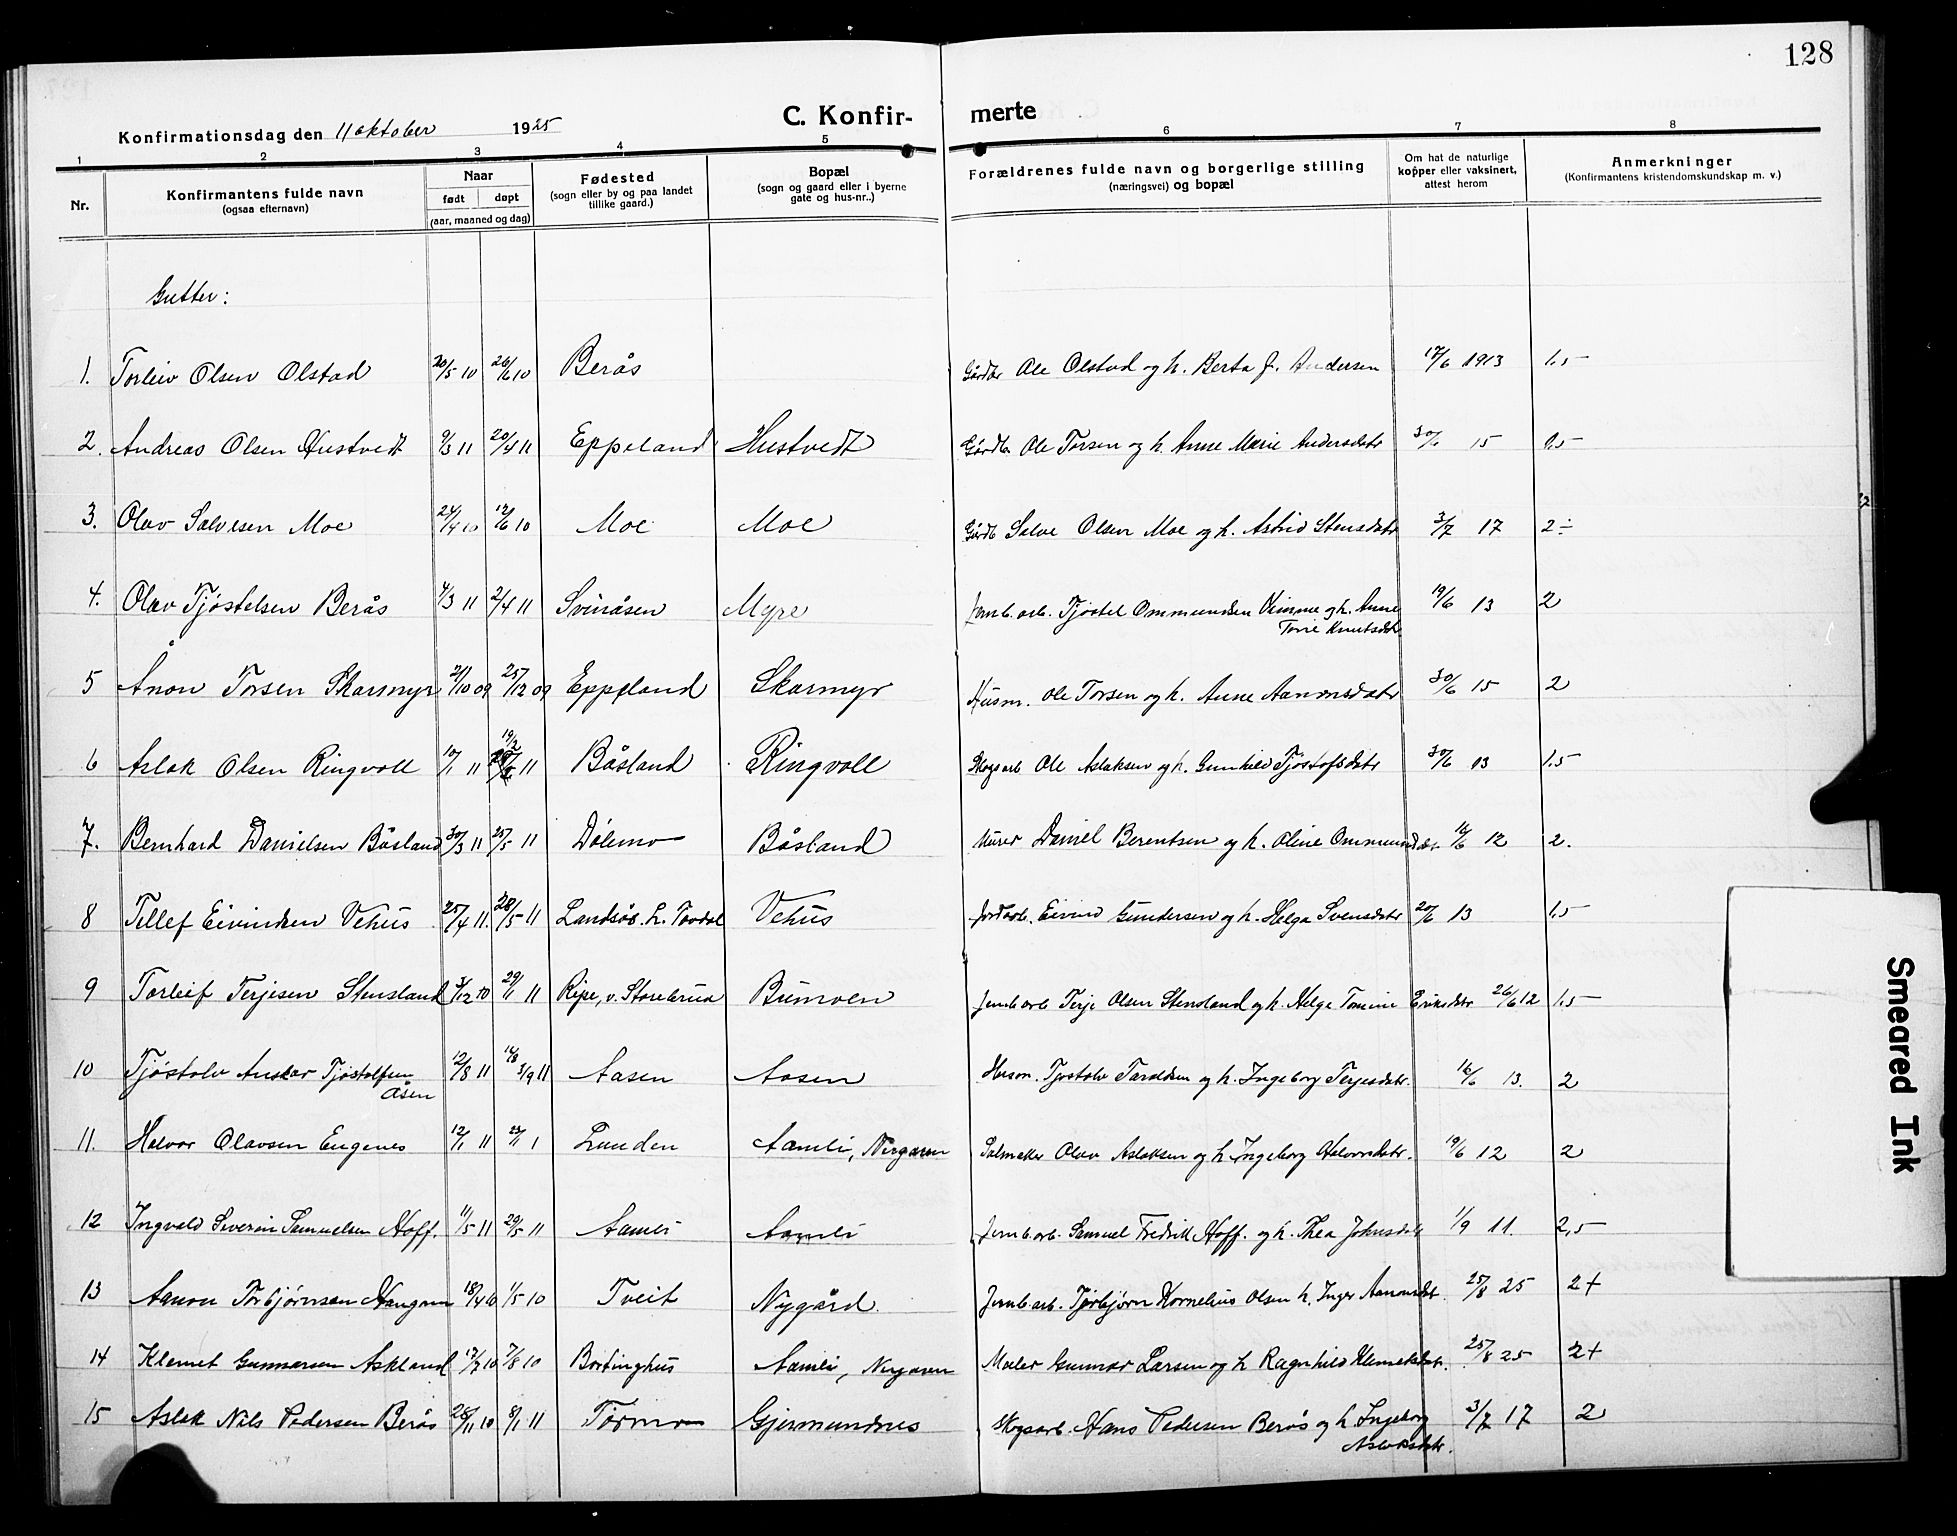 128
C. Konfir-
merte
Konfirmationsdag den 11 oktober 1925
1 2 3 4 5 6 7 8
Nr.
Konfirmantens fulde navn
(ogsaa efternavn)
Naar
født døpt
(aar, maaned og dag)
Fødested
(sogn eller by og paa landet
tillike gaard.)
Bopæl
(sogn og gaard eller i byerne
gate og hus-nr..)
Forældrenes fulde navn og borgerlige stilling
(næringsvei) og bopæl
Om hat de naturlige
kopper eller vaksinert,
attest herom
Anmerkninger
(Konfirmantens kristendomskundskap m. v.)
Gutter:
1. Torleiv Olsen Olstad 20/5 10 26/6 10 Berås Gårdbr Ole Olstad og h. Berta J. Andersen 17/6 1913 1.5
2. Andreas Olsen Hustvedt 9/3 11 20/4 11 Eppeland Hustvedt Gårdb. Ole Torsen og h. Anne Marie Andersdatr 15 1.5
3. Olav Salvesen Moe 24/4 10 12/6 10 Moe Moe Gårdb Salve Olsen Moe og h. Astrid Stensdatr 3/7 17 2÷
4. Olav Tjøstelsen Berås 4/3 11 2/4 11 Svinåsen Myre Jernb. arb. Tjøstel Ommundsen Vimme og h. Anne
Torie Knutsdatr 19/6 13 2
5 Ånon Torsen Skarmyr 2/10 09 25/12 09 Eppeland Skarmyr Husm. Ole Torsen og h. Anne Aanonsdatr 30/6 15 2
6 Aslak Olsen Ringvoll 10/1 11 19/2 11 Båsland Ringvoll Skogsarb Ole Aslaksen og h. Gunhild Tjøstofsdatr 30/6 13 1.5
7. Bernhard Danielsen Båsland 30/3 11 25/5 11 Dølemo Båsland Murer Daniel Berentsen og h. Oline Ommundsdatr. 16/6 12 2.
8 Tellef Eivindsen Vehus 25/4 11. 28/5 11 Landsås. h. Tovdal Vehus Jordarb. Eivind Gundersen og h. Helga Svensdatr 20/6 13 1.5
9 Torleif Terjesen Stensland 3/12 10 29/1 11 Ripe, v. Storebrua Bumoen Jernb arb Terje Olsen Stensland og h. Helga Tomine Eriksdatr 26/6 12 1.5
10 Tjøstolv Anskar Tjøstolfsen
Åsen 12/8 11 3/9 11 Aasen Aasen Husm. Tjøstolv Taraldsen og h. Ingeborg Terjesdatr. 16/6 13. 2
11. Halvor Olavsen Engenes 12/1 11 1 Lunden Aamli, Nygaren Salmaker Olav Aslaksen og h Ingeborg Halvorsdatr. 19/6 12 2
12 Ingvald Severin Samuelsen Hoff. 11/5 11 29/5 11 Aamli Aamli Jernb. arb. Samuel Fredrik Hoff. og h. Thea Johnsdatr 1/9 11. 2,5
13 Aanon Torbjørnsen Haugom 18/4 10 1/5 10 Tveit Nygård Jernb. arb. Tørbjørn Kornelius Olsen h. Inger Aanonsdatr. 25/8 25 2+
14 Klemet Gunnarsen Askland 17/7 10 7/8 10 Bortinghus Aamli, Nygaren Maler Gunnar Larsen og h Ragnhild Klemetsdatr. 25/8 25 2+
15 Aslak Nils Pedersen Berås 28/11 10 8/1 11 Tørmo Gjermundnes Skogsarb. Hans Pedersen Berås og h. Ingeborg
Aslaksdatr. 3/7 17 2
Smeared Ink